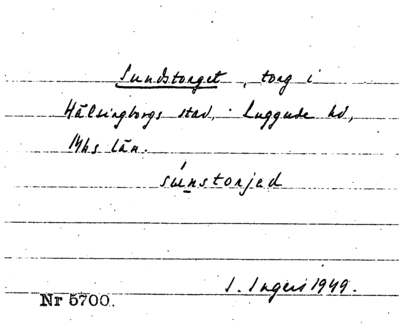 Sundstorget, torg i
Hälsingborgs stad, Luggude hd,
Mhs län.
súnstorjed
I. Ingers 1949.
Nr 5700.